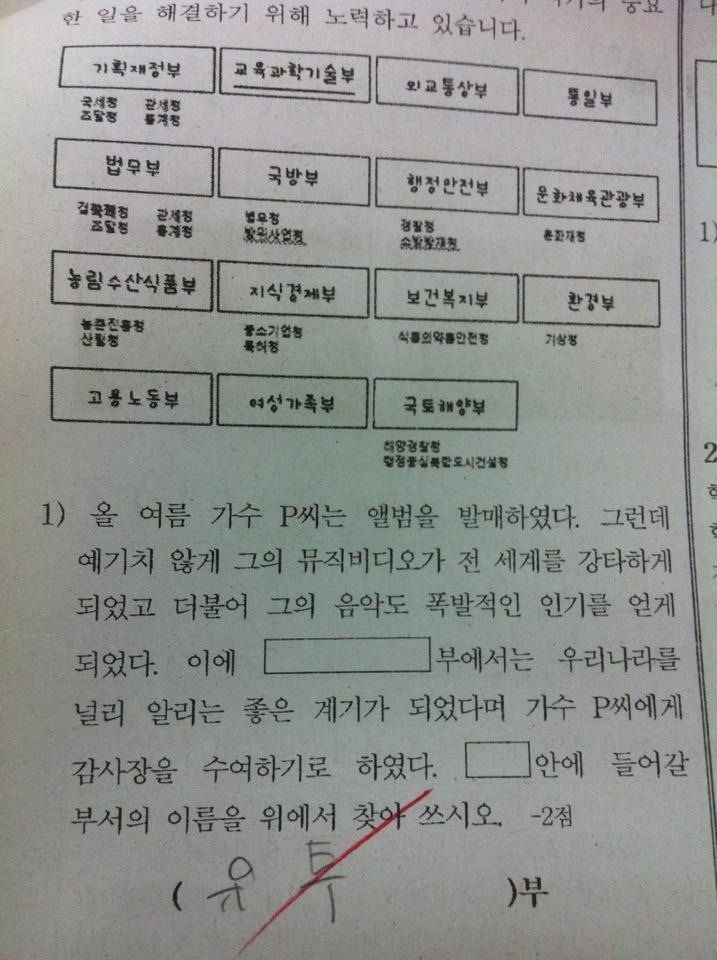 한 일을 해결하기 위해 노력하고 있습니다.
기획재정부 교육과학기술부 외교통상부 통일부
국세청 관세청
조달청 통계청
법무부 국방부 행정안전부 문화체육관광부
검찰청 관세청 병무청 경찰청 문화재청
조달청 통계청 방위사업청 소방방재청
농림수산식품부 지식경제부 보건복지부 환경부
농촌진흥청 중소기업청 식품의약품안전청 기상청
산림청 특허청
고용노동부 여성가족부 국토해양부
해양경찰청
행정중심복합도시건설청
1) 올 여름 가수 P씨는 앨범을 발매하였다. 그런데
예기치 않게 그의 뮤직비디오가 전 세계를 강타하게
되었고 더불어 그의 음악도 폭발적인 인기를 얻게
되었다. 이에 부에서는 우리나라를
널리 알리는 좋은 계기가 되었다며 가수 P씨에게
감사장을 수여하기로 하였다. 안에 들어갈
부서의 이름을 위에서 찾아 쓰시오. -2점
( 유 튜 )부
1)
2